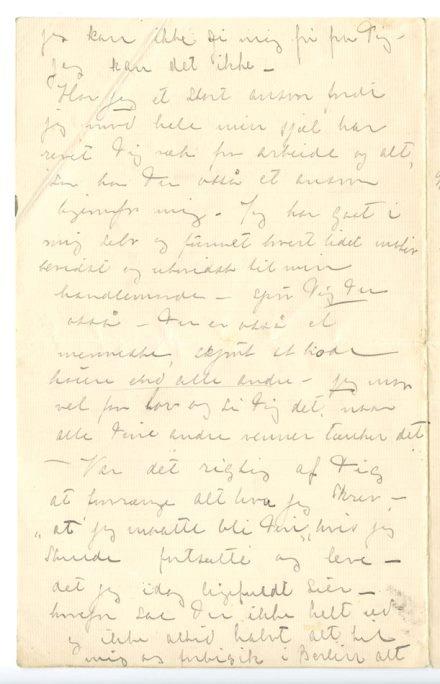 jeg kan ikke gi mig fri fra Dig –
jeg kan det ikke –
Har jeg et stort ansvar fordi
jeg mod hele min sjæl har
revet Dig væk fra arbeide og alt,
saa har Du også et ansvar
ligeoverfor mig. – Jeg har gaat i
mig selv og funnet hvert lidet motiv
bevidst og ubevidst til min
handlemaade – spør Dig Du
også – Du er også et
menneske, skjønt et hode
høiere end alle andre – jeg maa
vel faa lov og si Dig det, naar
alle Dine andre venner tænker det
– Var det rigtig af Dig
at alt hva jeg skrev –
„at jeg maatte bli Din", hvis jeg
skulde fortsætte og leve –
det jeg idag ligefuldt sier –
hvorfor saa Du ikke helt ud
og ikke altid halvt alt til
mig og forbigik i Berlin alt